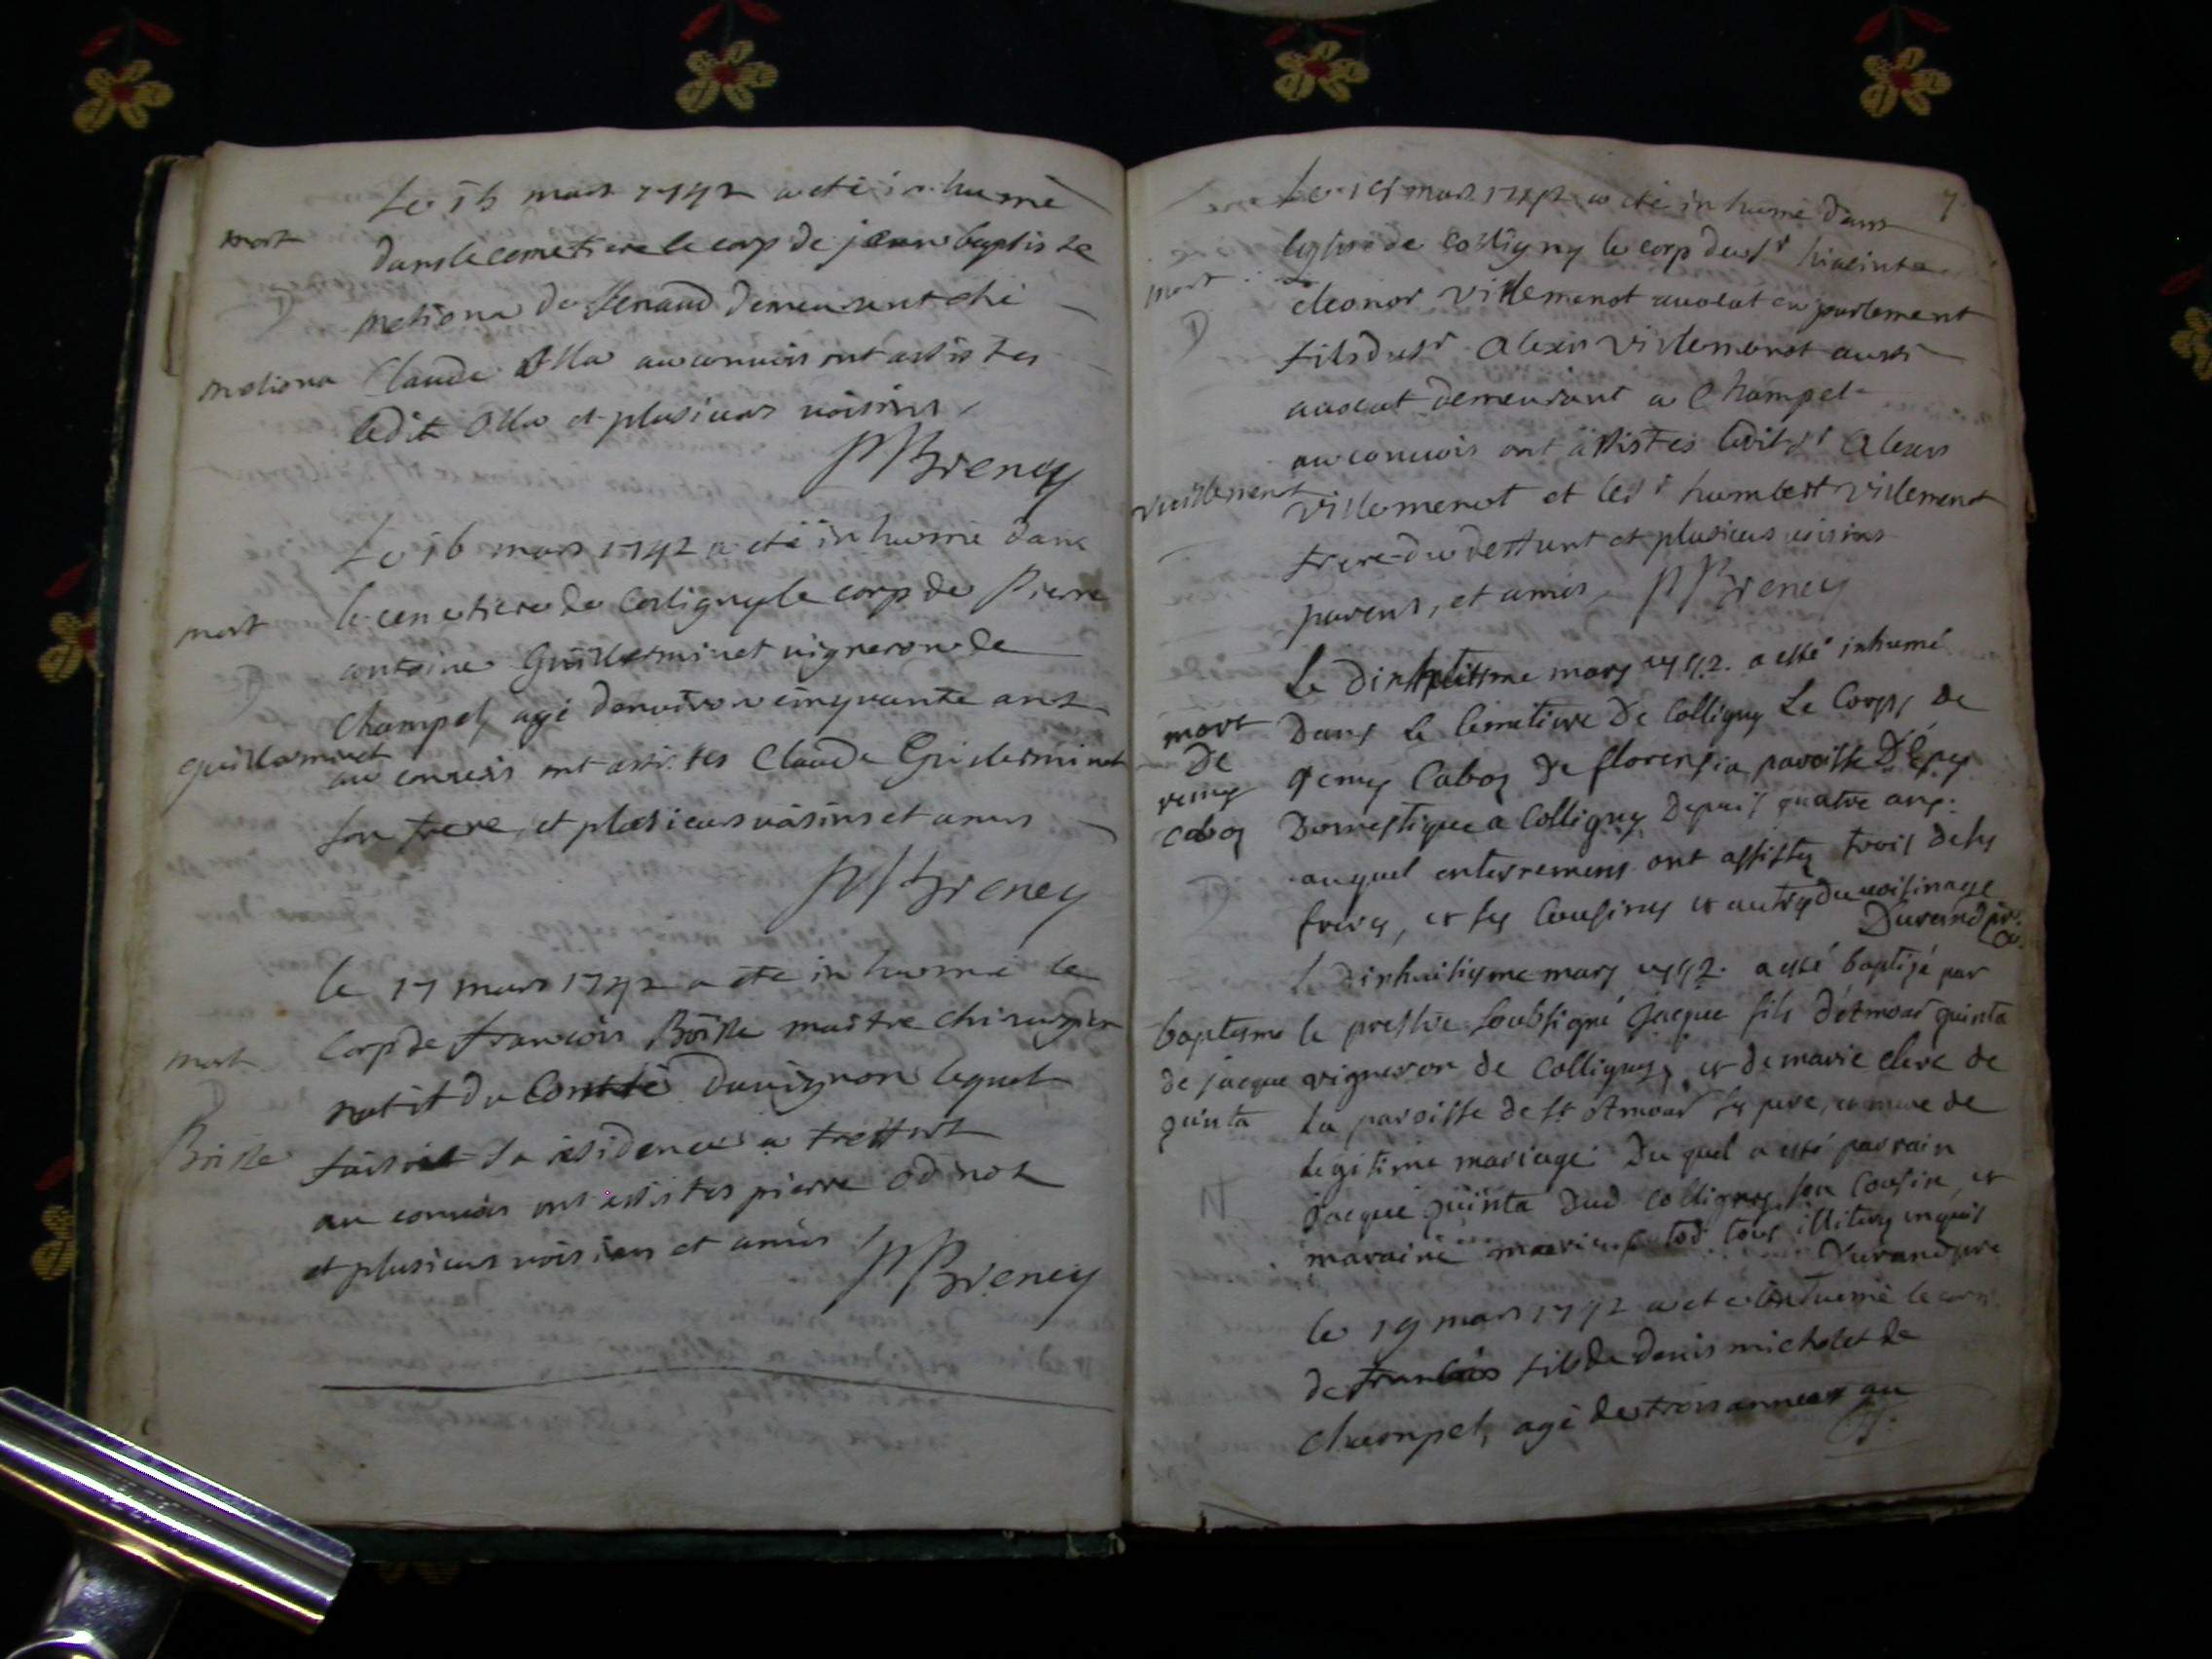 Le 15 mars 1742 a eté inhumé
mort
dans le cemetiere le corp de jean baptiste
metiona de demeurant ché
metiona
Claude olla au convois ont assistes
ledit olla et plusieurs voisins
PBreney
Le 16 mars 1742 a eté inhumé dans
mort
le cemetiere de Coligny le corp de Pierre
antoine Guillerminet vigneron de
Champel, agé denviron cinquante ans
guillerminet
au convois ont assistes Claude Guillerminet
son frere, et plusieurs voisins et amis
PBreney
le 17 mars 1742 a eté inhumé le
mort
Corp de francois Boiste maitre chirurgien
natif du Comté davignon lequel
Boiste
faisoit sa residence a treffort
au convois ont assistes pierre odinot
et plusieurs voisins et amis
PBreney
7
Le mars 1742 a eté inhumé dans
leglise de Colligny le corp du sr hiacinte
mort
eleonor Villemenot avocat en parlement
fils du sr Alexis Villemenot aussi
avocat demeurant a Champel
au convois ont assistes ledit sr Alexis
vuillemenot
Villemenot et le sr humbert Villemenot
frere du deffunt et plusieurs voisins
parens, et amis PBreney
Le dixseptisme mars 1742. a esté inhumé
mort
dans le Cimetiere de Colligny Le Corps de
de
remy Caboz de florensia paroisse D'Epey
remy
caboz
Domestique a Colligny Depuis quatre ans.
auquel enterrement ont assistés trois de ses
freres, et ses Cousins et autres du voisinage
Durand
Le dixhuitisme mars 1742. a esté baptisé par
baptesme
le prestre soubsigné Jacque fils d'Amour quinta
de jacque
vigneron de Colligny, et de marie clerc de
quinta
La paroisse de St Amour ses pere, et mere de
Legitime mariage. Du quel a esté parrain
Jacque quinta dud Colligny son Cousin, et
maraine tous illiterés enquis
Durand
le 19 mars 1742 a eté inhumé le corp
de francois fils de denis micholet de
champel, agé de trois annees au